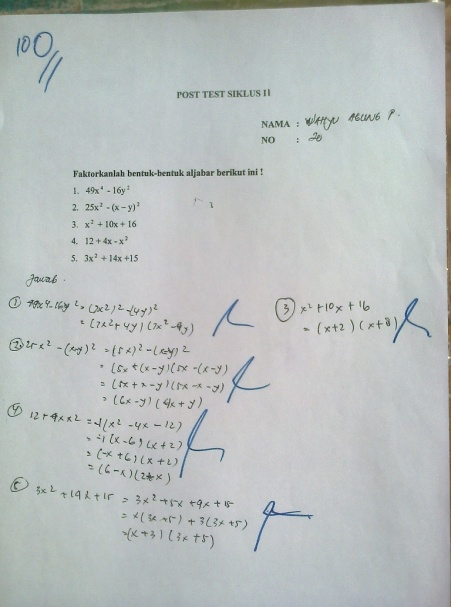 100
POST TEST SIKLUS II
NAMA : WAHYU AGUNG P.
NO : 20
Faktorkanlah bentuk-bentuk aljabar berikut ini !
1. 49x⁴ - 16y²
2. 25x² - (x – y)²
3. x² + 10x + 16
4. 12 + 4x - x²
5. 3x² + 14x +15
Jawab.
① 49x4-16y² = (7x²)²-(4y)²
= (7x²+4y) (7x²-4y)
② 25x² -(x-y)² = (5x)²-(x-y)²
= (5x+(x-y)(5x-(x-y)
= (5x+x-y)(5x-x-y)
= (6x-y) (4x+y)
④ 12+4xx2 = -1(x² -4x -12)
= -1(x-6) (x+2)
= (-x+6) (x+2)
= (6-x)(2+x)
⑤ 3x²+14x+15 = 3x²+5x+9x+15
= x(3x+5)+3(3x+5)
= (x+3) (3x+5)
③ x²+10x+16
= (x+2) (x+8)